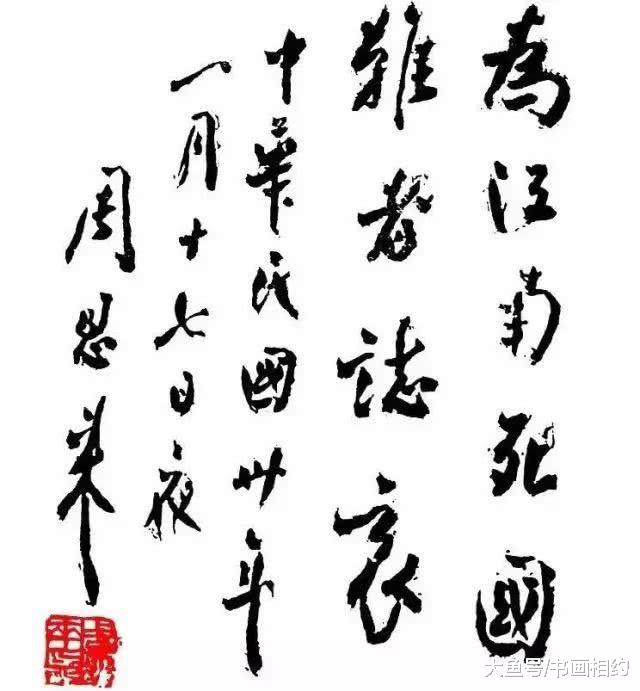 為江南死國
難者誌哀
中華民國卅年
一月十七日夜
周恩来
大鱼号/书画相约